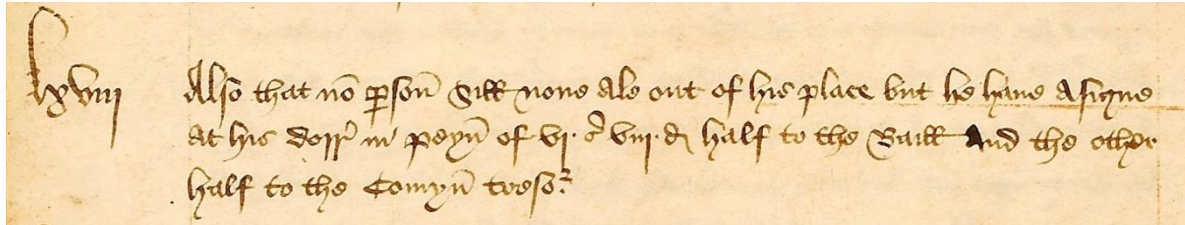 lxviij Also that no p̱son̄ Sill none ale out of his place but he haue a signe
at his dorr̛ in peyn̄ of vj. s̛ viij. d̛ half to the Baill And the other
half to the Comyn̄ treso.̛